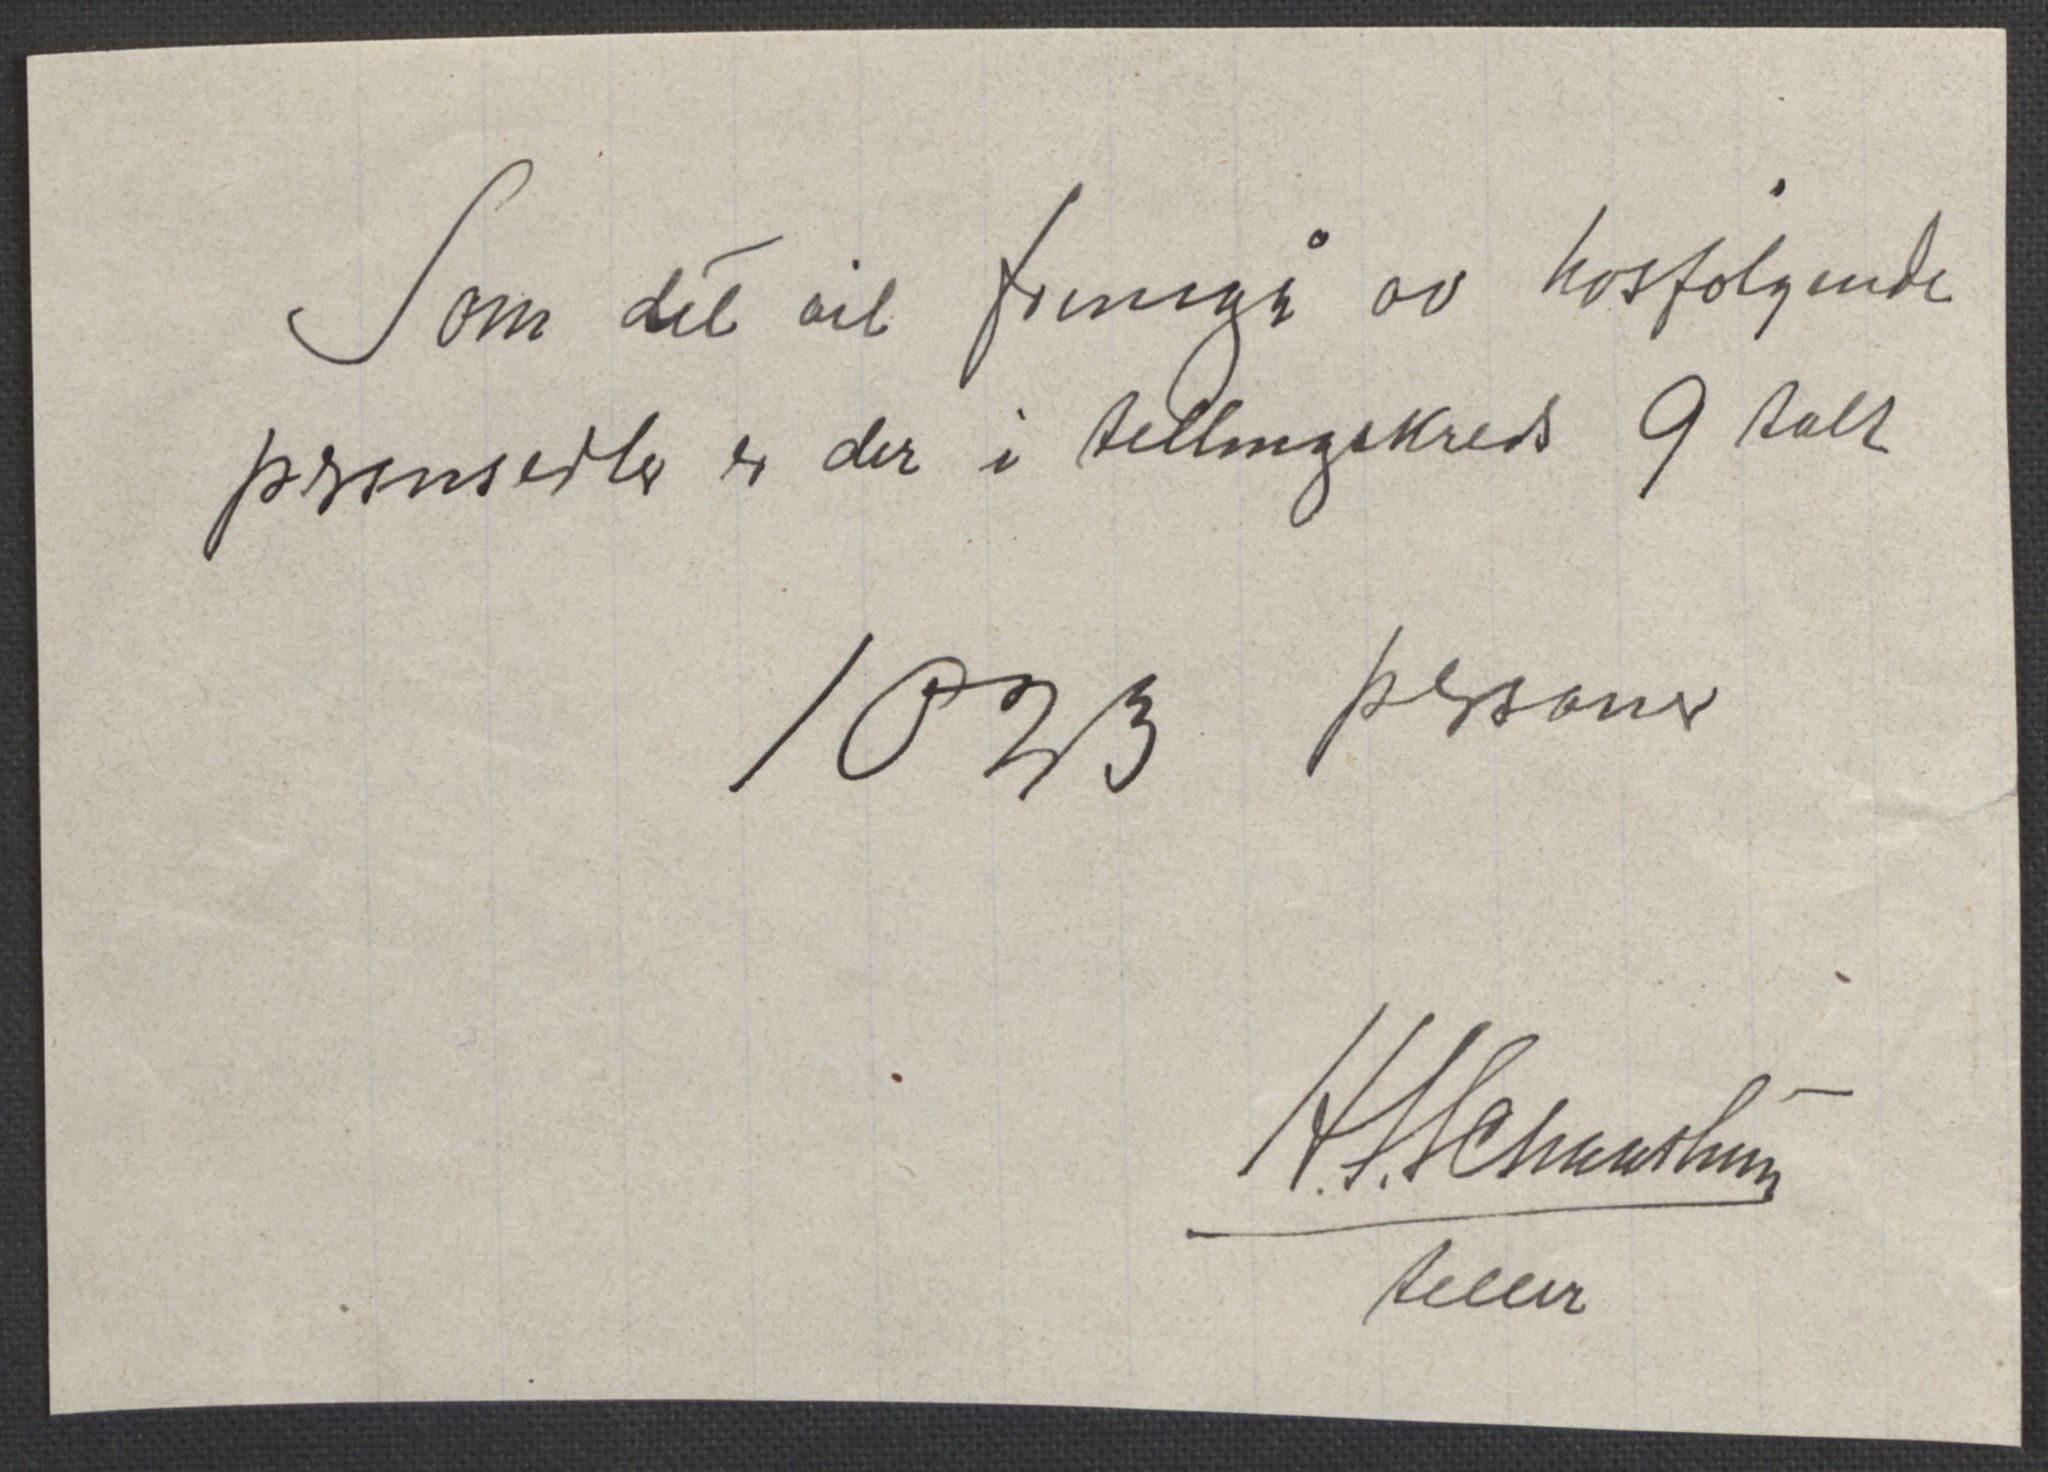 Som det vil fremgå av hosfølgende
personsedler er der i tellingskreds 9 talt
1023 personer
teller